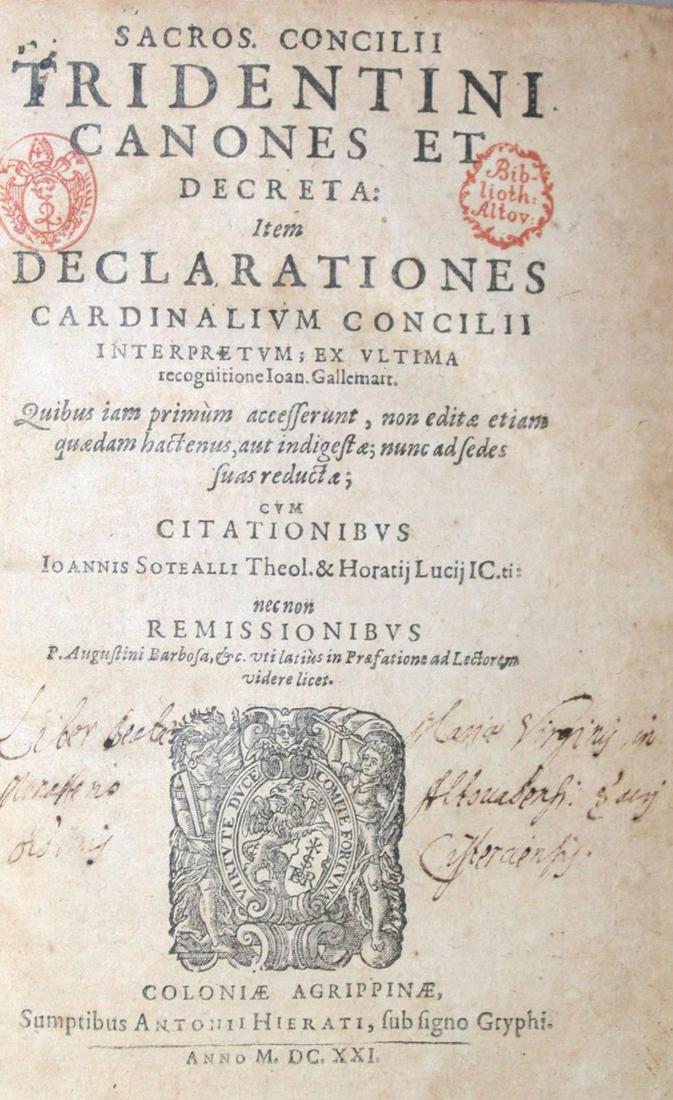 SACROS. CONCILII
TRIDENTINI
CANONES ET
DECRETA:
Item
DECLARATIONES
CARDINALIVM CONCILII
INTERPRETVM; EX VLTIMA
recognitione Ioan. Gallemart.
Quibus iam primùm accesserunt, non editæ etiam
quædam hactenus, aut indigestæ; nunc ad sedes
suas reductæ;
CVM
CITATIONIBVS
IOANNIS SOTEALLI Theol. & Horatij Lucij IC.ti:
nec non
REMISSIONIBVS
P. Augustini Barbosa, &c. vti latiùs in Præfatione ad Lectorem
videre licet.
Bib-
lioth:
Altov:
Liber Beatæ Mariæ Virginis in
Altouadensi
Cisterciensis.
VIRTUTE DVCE COMITE FORTVNA
COLONIÆ AGRIPPINÆ,
Sumptibus ANTONII HIERATI, sub signo Gryphi.
ANNO M. DC. XXI.